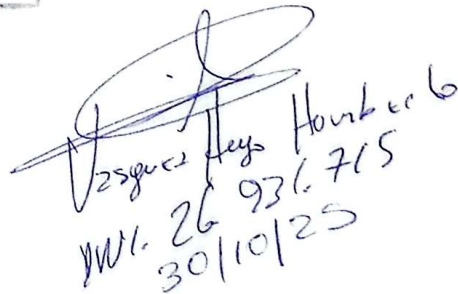 Vasquez Hugo Humberto
DNI. 26 931.715
30/10/25